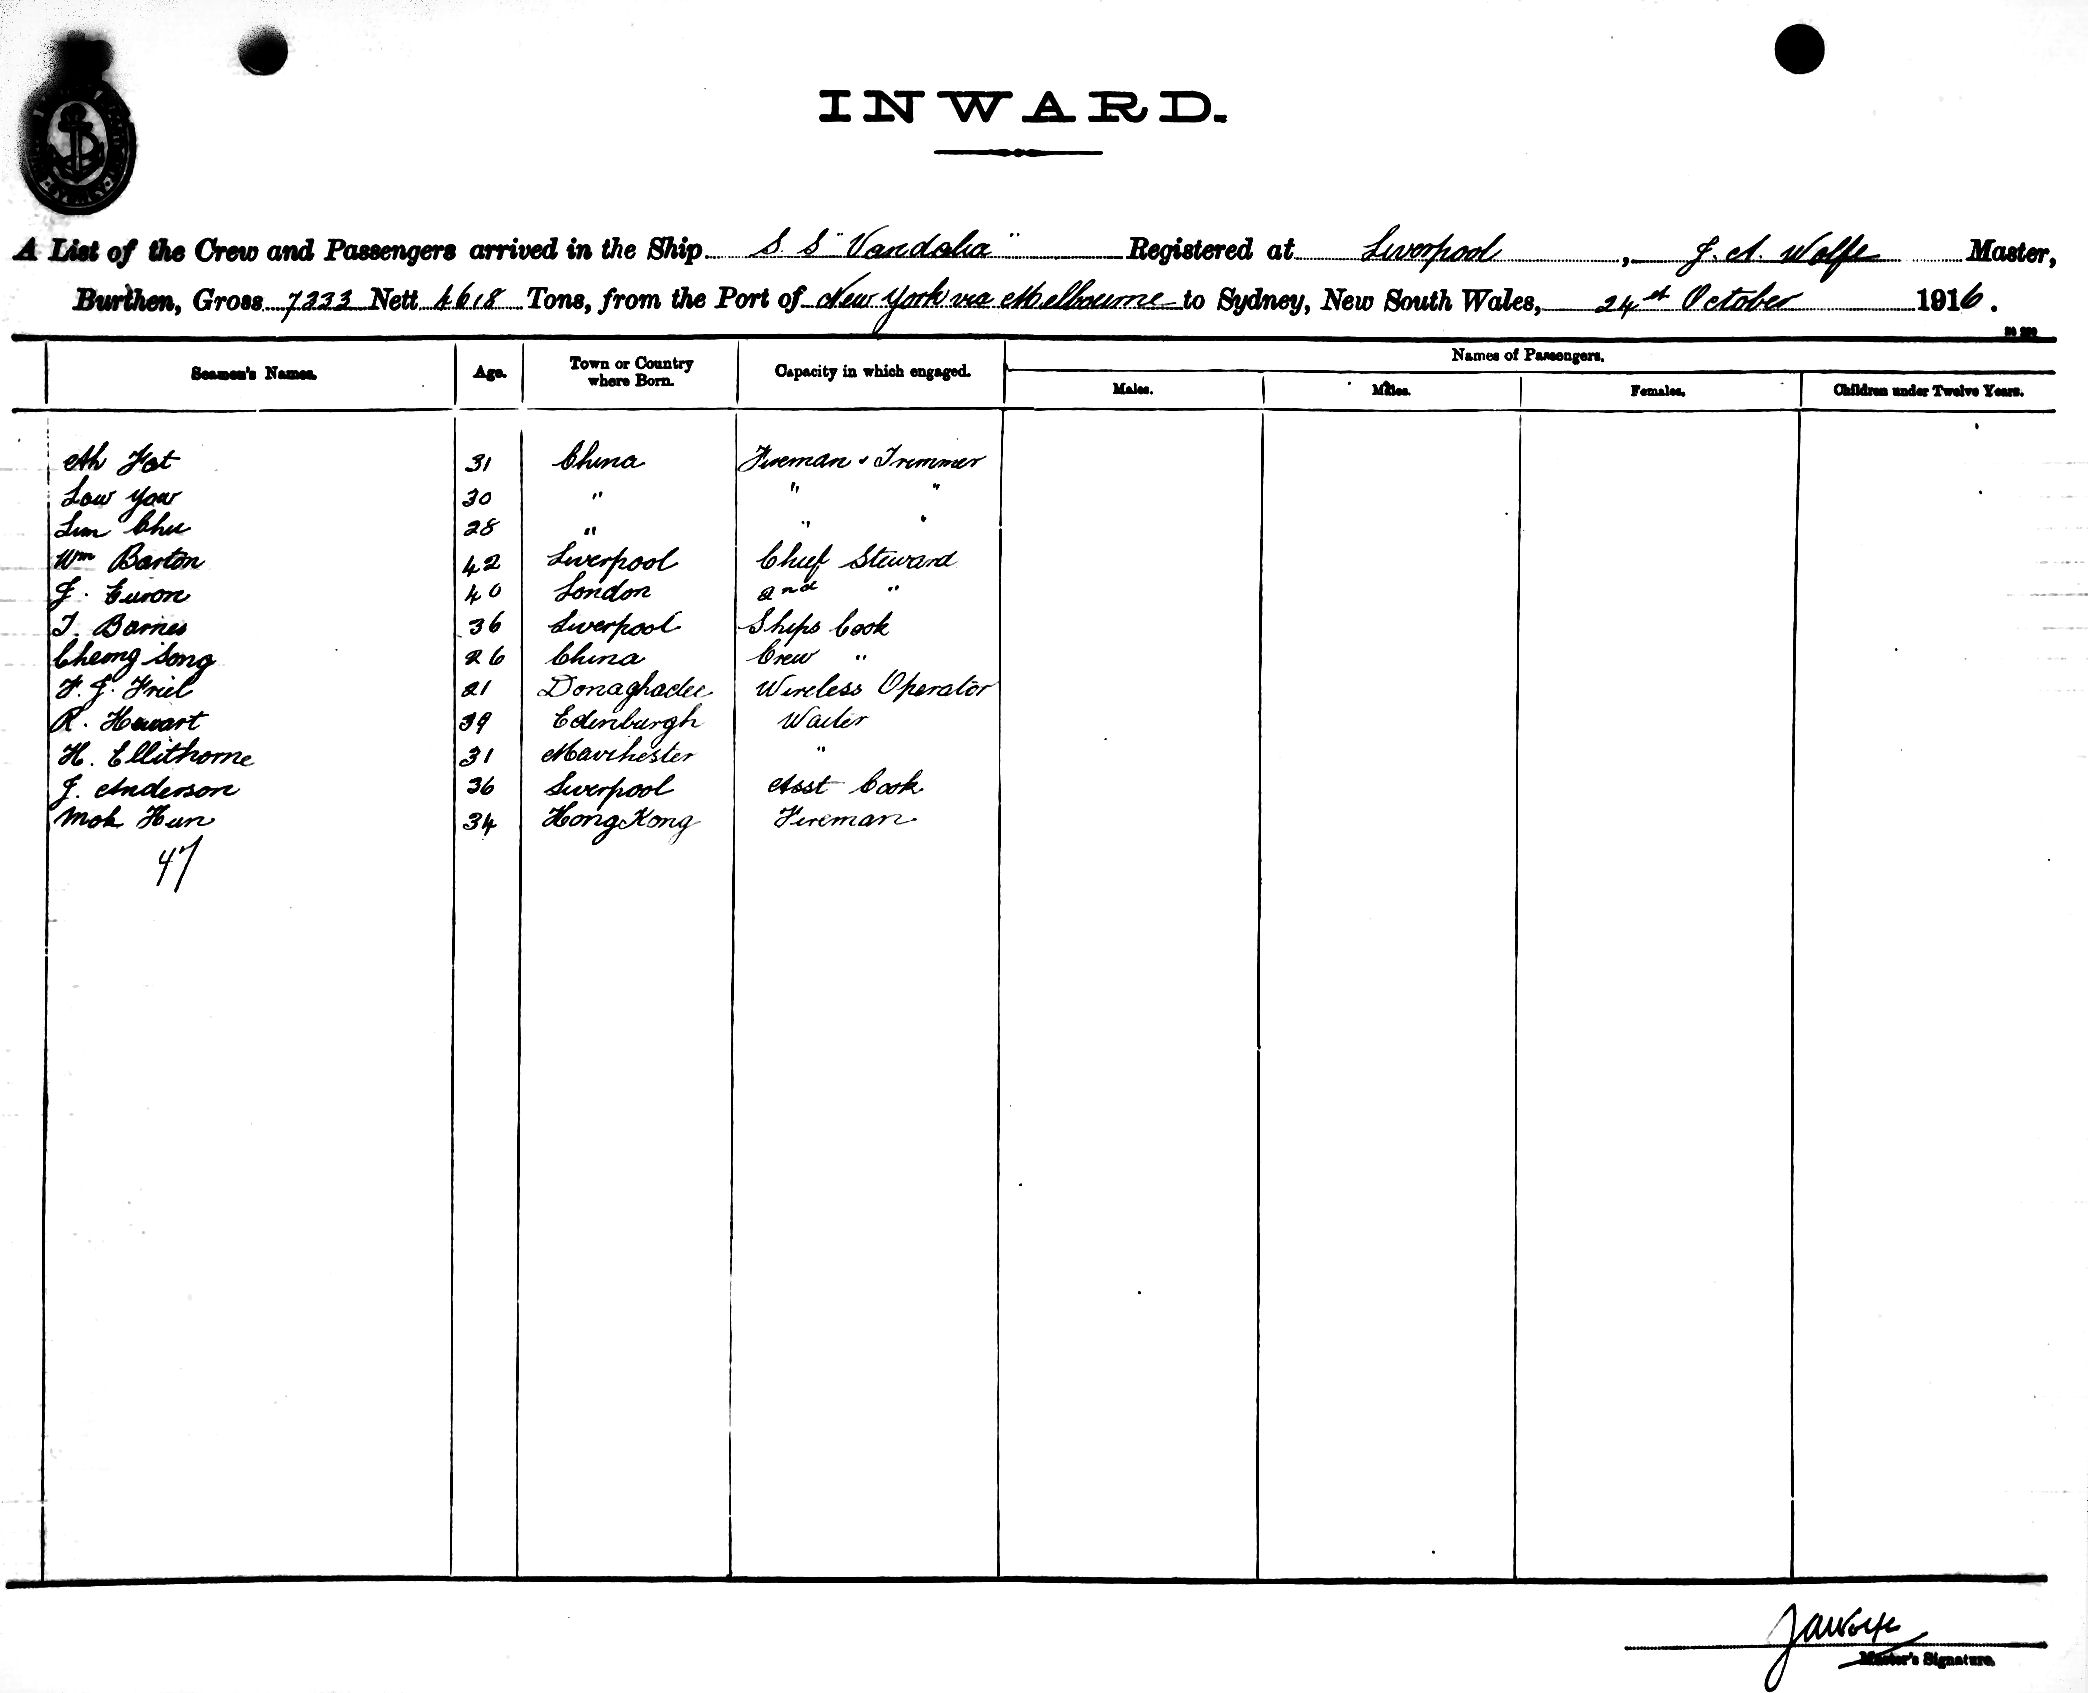 INWARD.
A List of the Crew and Passengers arrived in the Ship S. S "Vandalia" Registered at Liverpool, J. A. Wolfe Master,
Burthen, Gross 7333 Nett 4618 Tons, from the Port of New York via Melbourne to Sydney, New South Wales, 24st October 1916.
Names of Passengers.
Seamen's Names. Age. Town or Country where Born. Capacity in which engaged. Males. Males. Females. Children under Twelve Years.
Ah Fat 31 China Fireman & Trimmer
Low Yow 30 " " "
Lim Chu 28 " " "
Wm Barton 42 Liverpool Chief Steward
J. 40 London 2nd "
T. Barnes 36 Liverpool Ships Cook
Cheong Song 26 China Crew "
F. J. Friel 21 Donaghadee Wireless Operator
R. Hewart 39 Edinburgh Waiter
H. Ellithorne 31 Manchester "
J. Anderson 36 Liverpool Asst Cook
Mok Hun 34 Hong Kong Fireman
47
JAWolfe
Master's Signature.